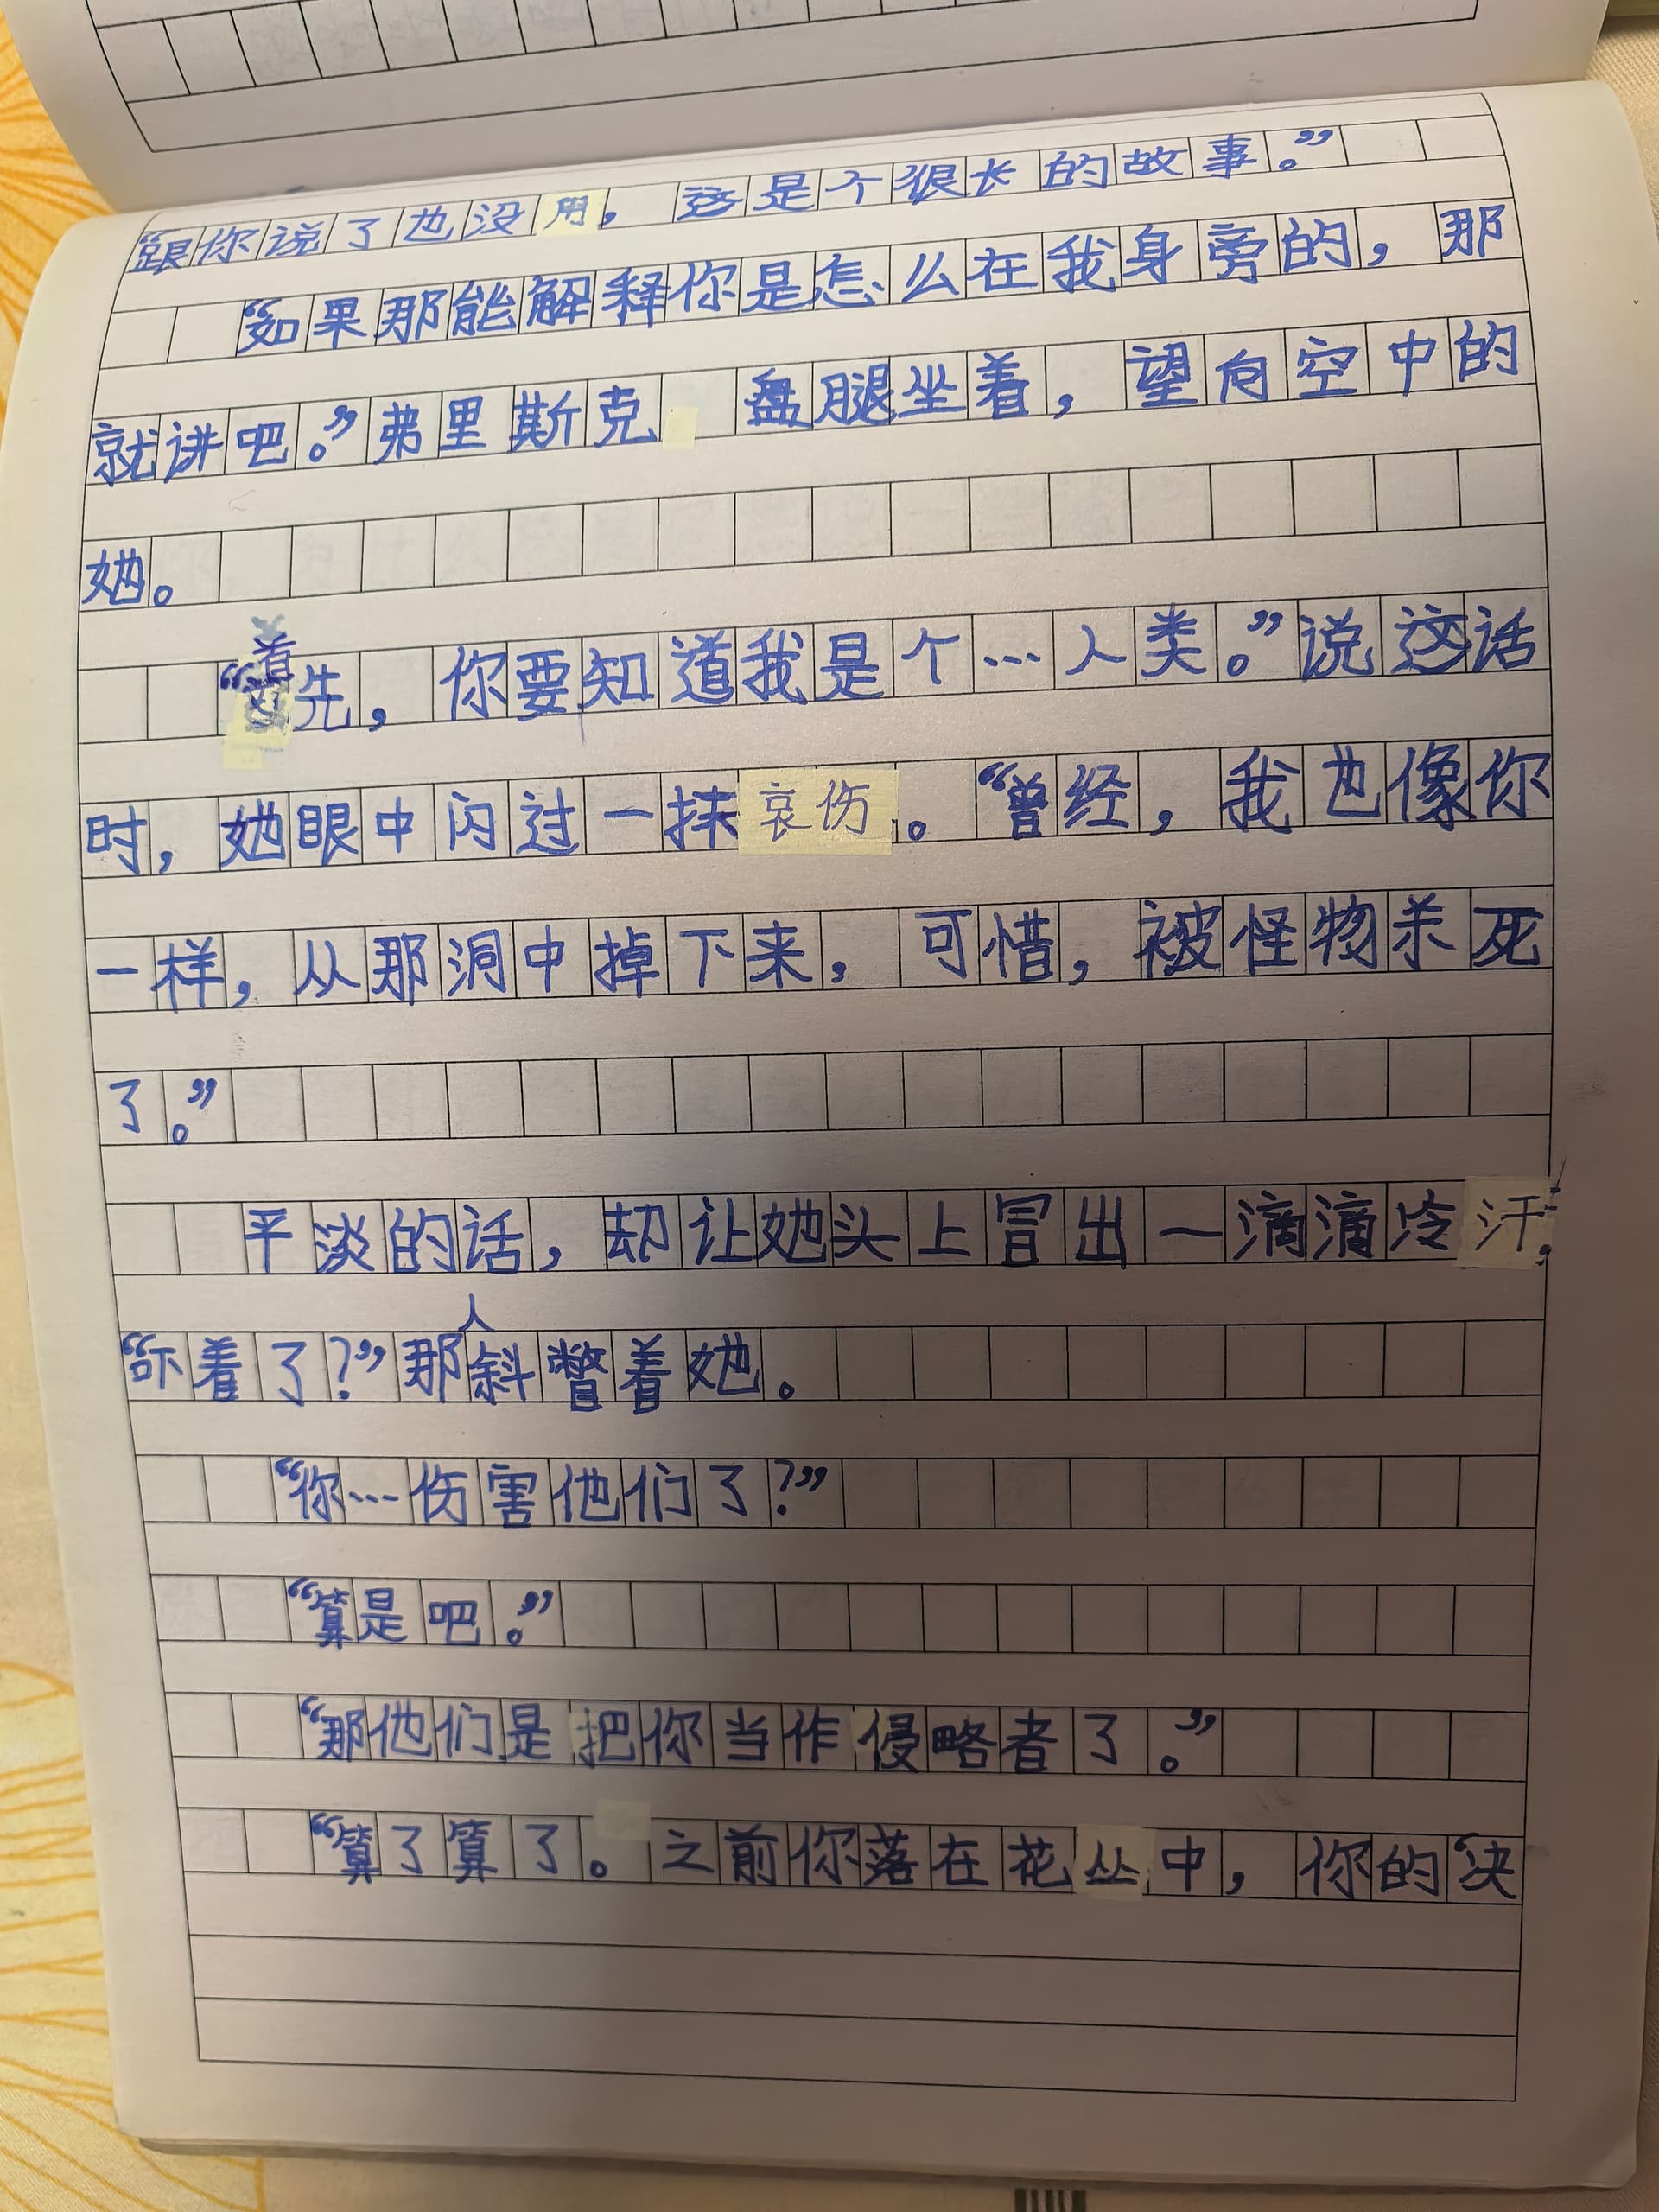 “跟你说了也没用，这是个很长的故事。”
“如果那能解释你是怎么在我身旁的，那
就讲吧。”弗里斯克 盘腿坐着，望向空中的
她。
“首先，你要知道我是个…人类。”说这话
时，她眼中闪过一抹哀伤。“曾经，我也像你
一样，从那洞中掉下来，可惜，被怪物杀死
了。”
平淡的话，却让她头上冒出一滴滴冷汗，
“吓着了？”那人斜瞥着她。
“你…伤害他们了？”
“算是吧。”
“那他们是把你当作侵略者了。”
“算了算了。之前你落在花丛中，你的“决